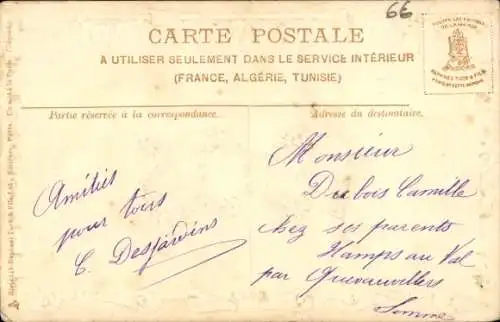 6E
CARTE POSTALE
A UTILISER SEULEMENT DANS LE SERVICE INTÉRIEUR
(FRANCE, ALGÉRIE, TUNISIE)
Partie réservée à la correspondance.
Adresse du destinataire.
Amitiés
pour tous
C. Desjardins
Monsieur
Dubois Camille
chez ses parents
Hamps au Val
par Quevauvillers
Somme